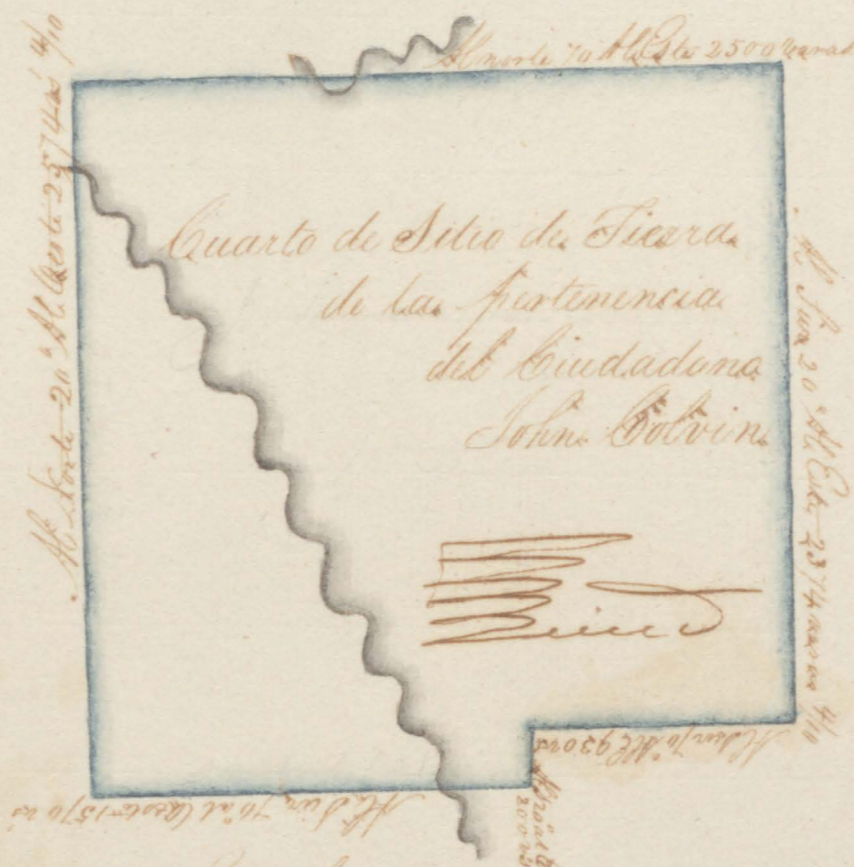 Al norte 70 Al Este 2500 varas
Al Norte 20° Al Oeste 2574 4/10
Cuarto de Sitio de Tierra
de la pertenencia
del Ciudadano
John Colvin
Al Sur 20° Al Este 2374 varas 4/10
Al Sur 70 Al 930 vs
200 vs
Al Sur 70 al Oeste 1570 vs